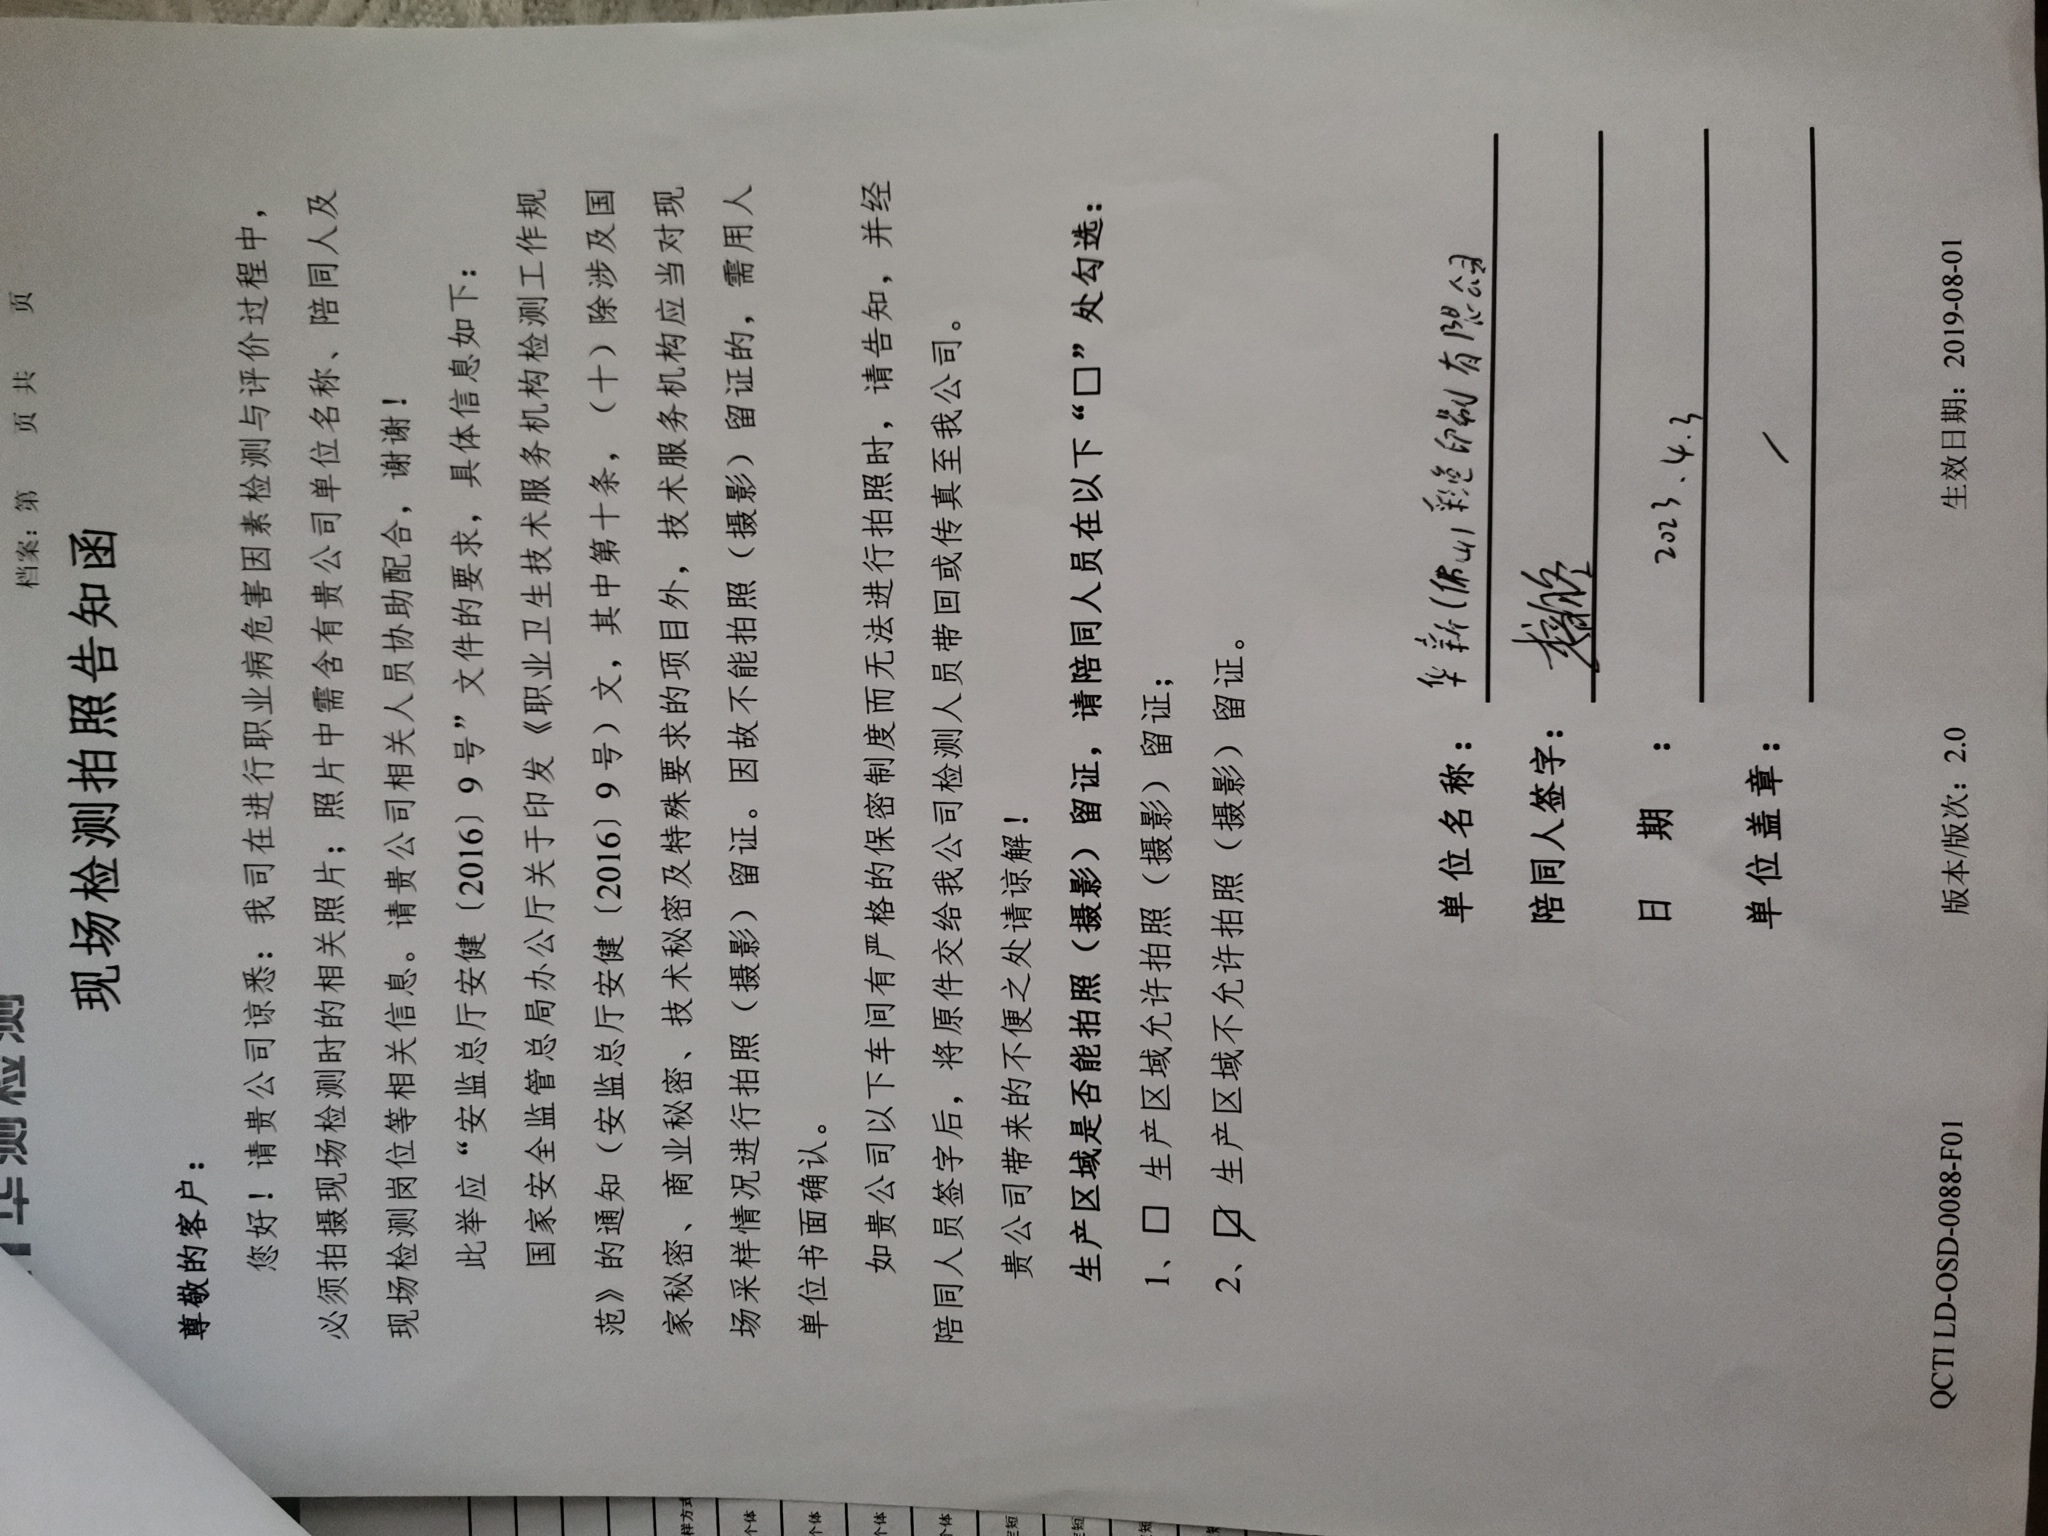 华测检测
档案：第 页 共 页
现场检测拍照告知函
尊敬的客户：
您好！请贵公司谅悉：我司在进行职业病危害因素检测与评价过程中，
必须拍摄现场检测时的相关照片；照片中需含有贵公司单位名称、陪同人及
现场检测岗位等相关信息。请贵公司相关人员协助配合，谢谢！
此举应“安监总厅安健〔2016〕9号”文件的要求，具体信息如下：
国家安全监管总局办公厅关于印发《职业卫生技术服务机构检测工作规
范》的通知（安监总厅安健〔2016〕9号）文，其中第十条，（十）除涉及国
家秘密、商业秘密、技术秘密及特殊要求的项目外，技术服务机构应当对现
场采样情况进行拍照（摄影）留证。因故不能拍照（摄影）留证的，需用人
单位书面确认。
如贵公司以下车间有严格的保密制度而无法进行拍照时，请告知，并经
陪同人员签字后，将原件交给我公司检测人员带回或传真至我公司。
贵公司带来的不便之处请谅解！
生产区域是否能拍照（摄影）留证，请陪同人员在以下“□”处勾选：
1、□ 生产区域允许拍照（摄影）留证；
2、☑ 生产区域不允许拍照（摄影）留证。
单位名称：华新(佛山)彩色印刷有限公司
陪同人签字：
日 期 ：2023.4.3
单位盖章：/
QCTI LD-OSD-0088-F01 版本/版次：2.0 生效日期：2019-08-01
样方式
个体
个体
个体
个体